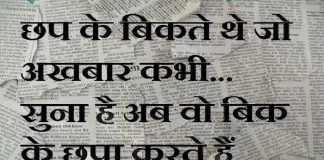 छप के बिकते थे जो
अखबार कभी...
सुना है अब वो बिक
के छपा करते हैं